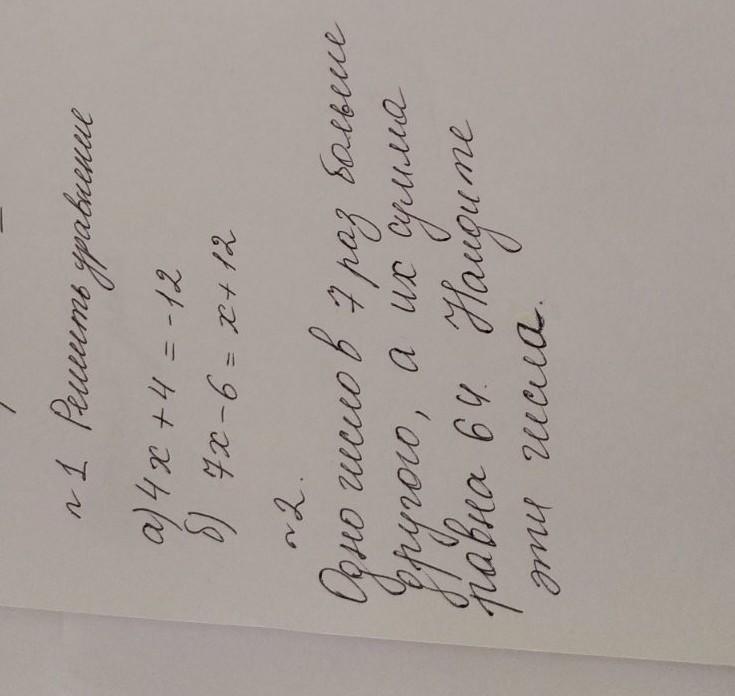 ~1 Решить уравнение
а) 4x + 4 = -12
б) 7x - 6 = x + 12
~2.
Одно число в 7 раз больше
другого, а их сумма
равна 64. Найдите
эти числа.